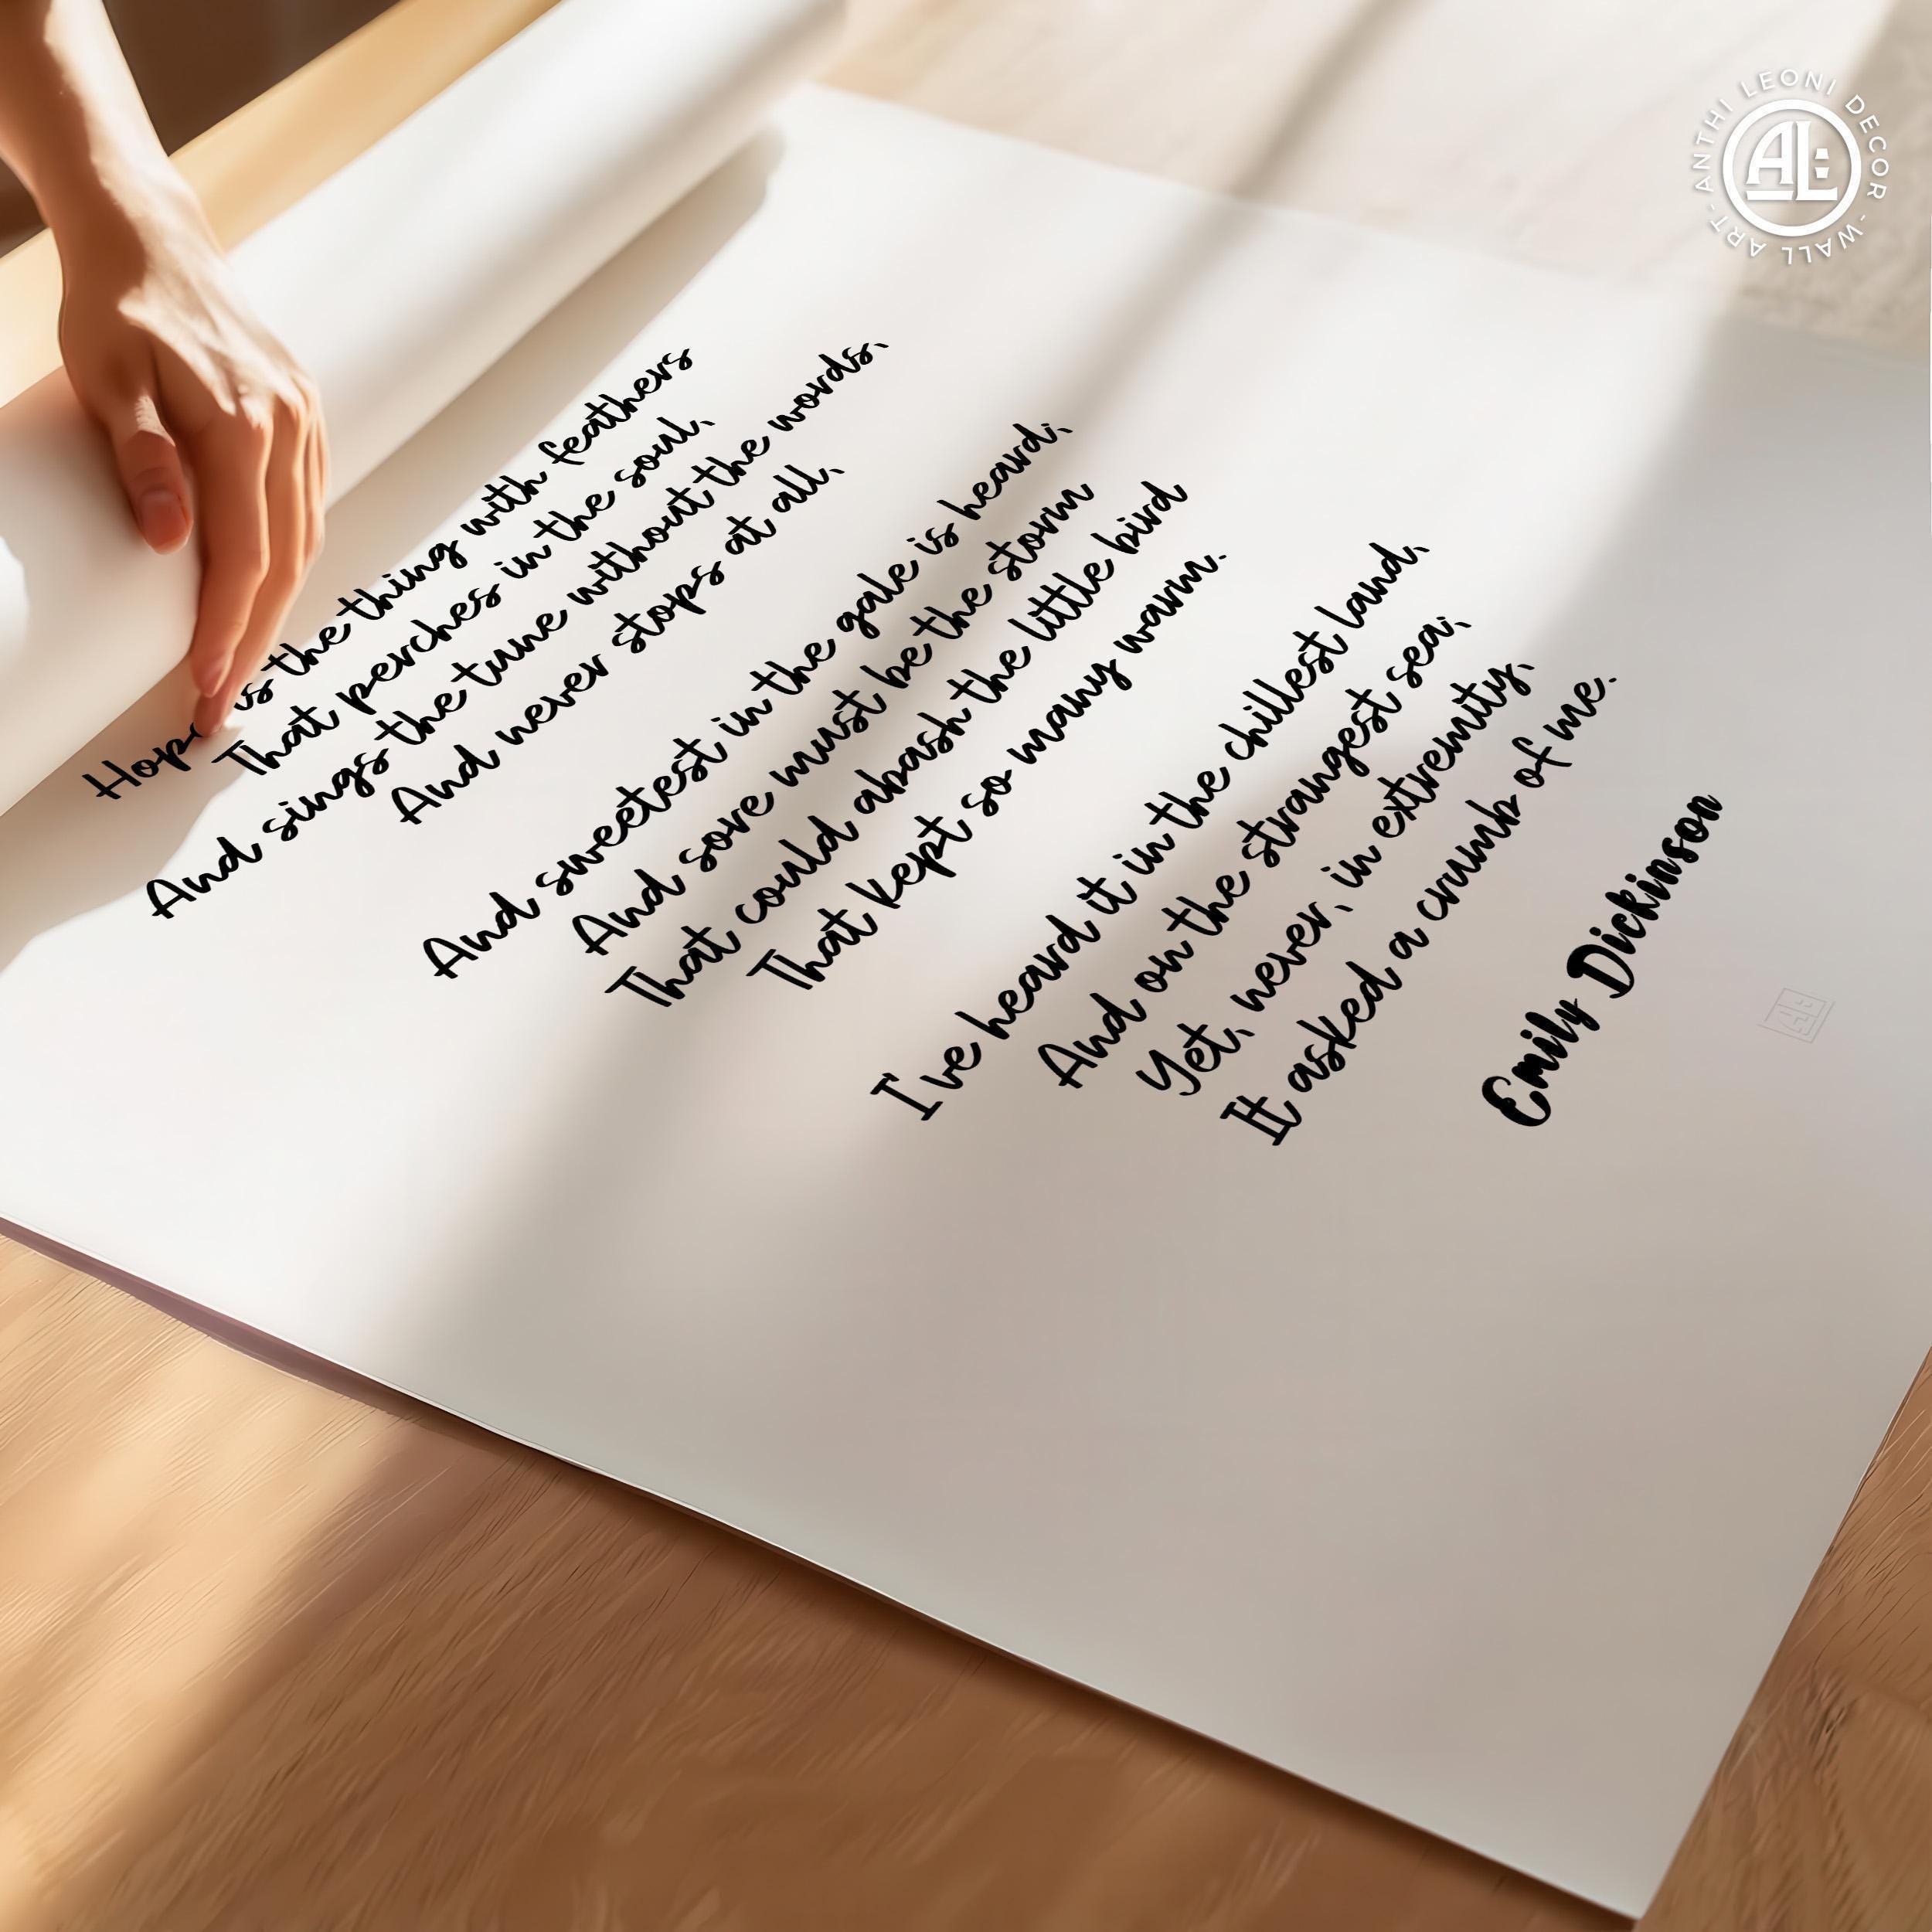 Hope is the thing with feathers
That perches in the soul,
And sings the tune without the words,
And never stops at all,
And sweetest in the gale is heard;
And sore must be the storm
That could abash the little bird
That kept so many warm.
I've heard it in the chillest land,
And on the strangest sea;
Yet, never, in extremity,
It asked a crumb of me.
Emily Dickinson
AL
ANTHI LEONI DECOR - WALL ART -